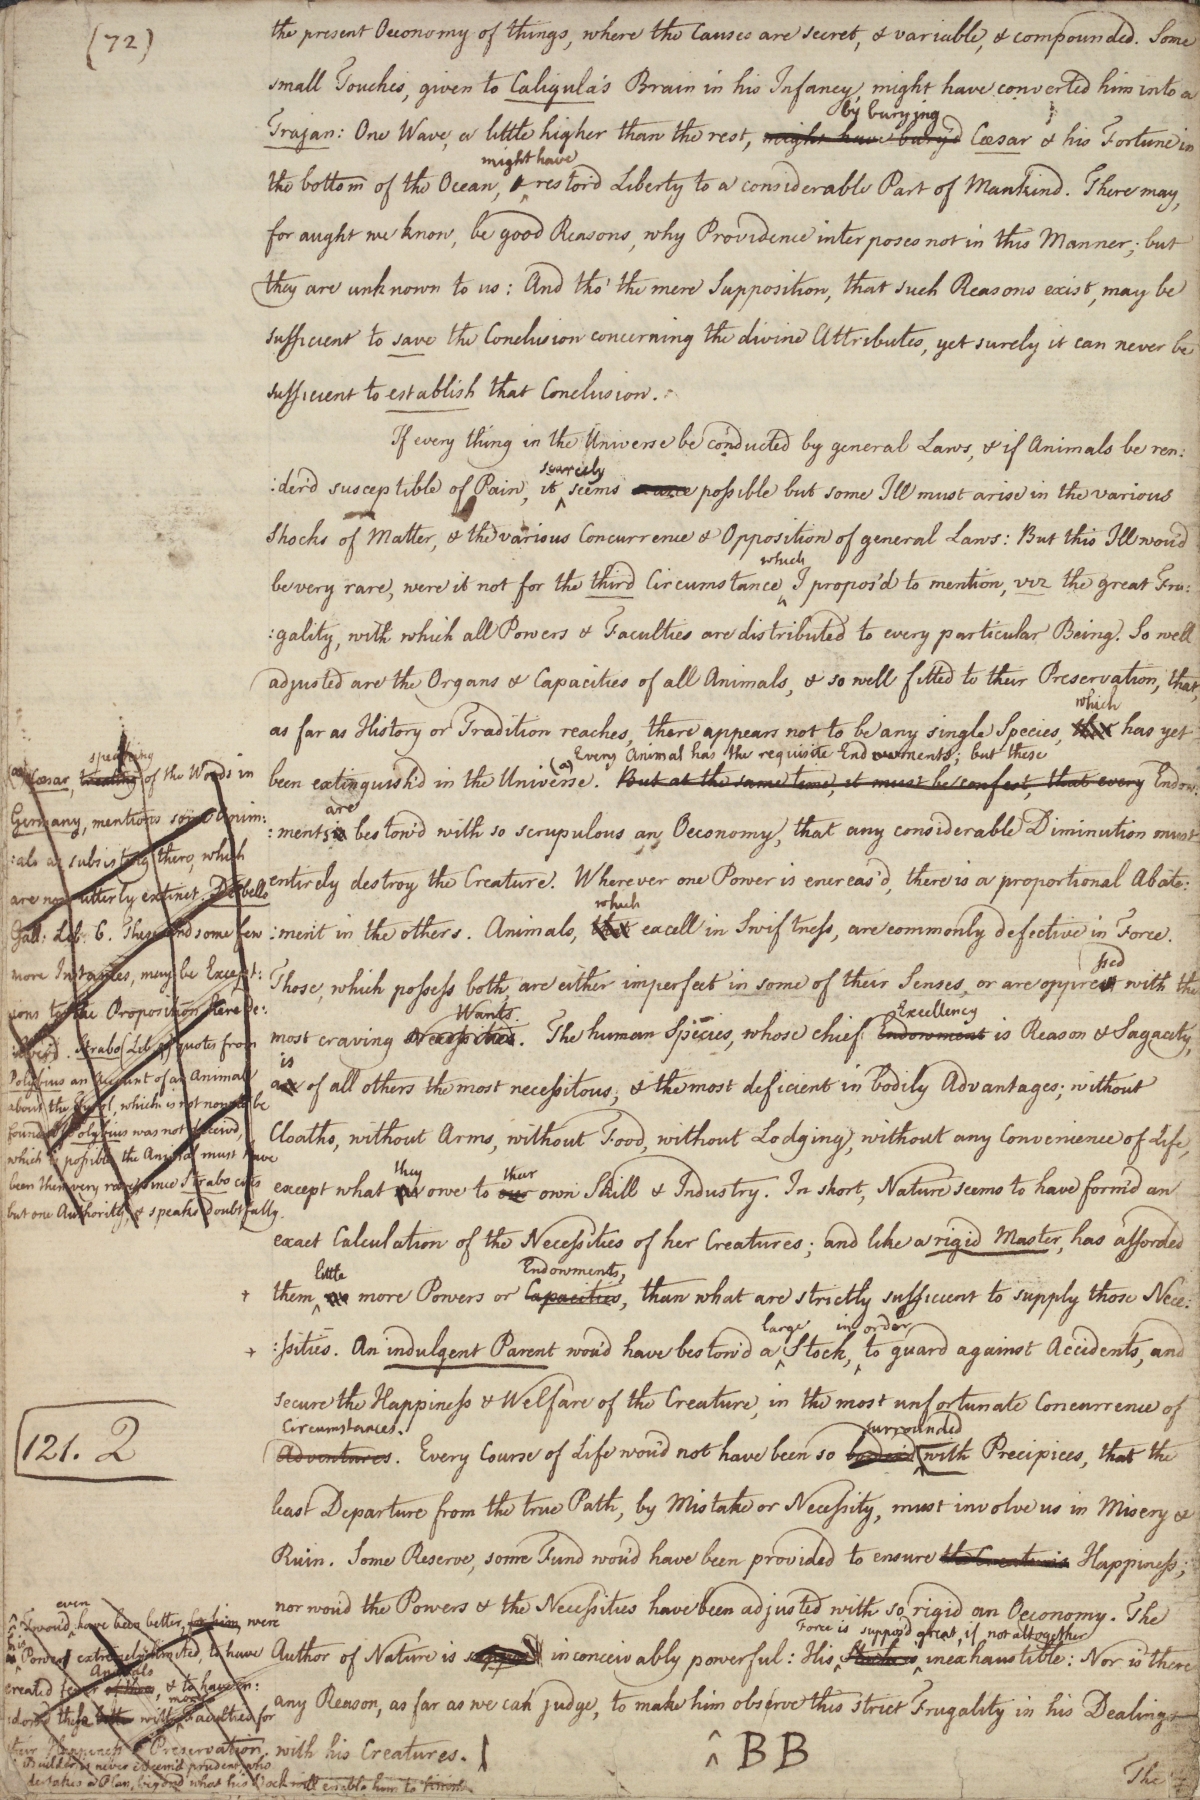 (72)
the present Oeconomy of things, where the Causes are secret, & variable, & compounded. Some
small Touches, given to Caligula's Brain in his Infancy, might have converted him into a
by burying
Trajan: One Wave, a little higher than the rest, might have bury'd Cæsar & his Fortune in
might have
the bottom of the Ocean, & restor'd Liberty to a considerable Part of Mankind. There may,
for aught we know, be good Reasons, why Providence interposes not in this Manner; but
they are unknown to us: And tho' the mere Supposition, that such Reasons exist, may be
sufficient to save the Conclusion concerning the divine Attributes, yet surely it can never be
sufficient to establish that Conclusion.
If every thing in the Universe be conducted by general Laws, & if Animals be ren:
scarcely
:der'd susceptible of Pain, it seems scarce possible but some Ill must arise in the various
Shocks of Matter, & the various Concurrence & Opposition of general Laws: But this Ill wou'd
which
be very rare, were it not for the third Circumstance I propos'd to mention, viz the great Fru:
:gality, with which all Powers & Faculties are distributed to every particular Being. So well
adjusted are the Organs & Capacities of all Animals, & so well fitted to their Preservation, that,
which
as far as History or Tradition reaches, there appears not to be any single Species, that has yet
(a) Every Animal has the requisite Endowments; but these
been extinguish'd in the Universe. But at the same time, it must be confest, that every Endow:
are
:ments is bestow'd with so scrupulous an Oeconomy, that any considerable Diminution must
entirely destroy the Creature. Wherever one Power is encreas'd, there is a proportional Abate:
which
:ment in the others. Animals, that excell in Swiftness, are commonly defective in Force.
ssed
Those, which possess both, are either imperfect in some of their Senses, or are opprest with the
Wants. Excellency
most craving Necessities. The human Species, whose chief Endowment is Reason & Sagacity,
is
are of all others the most necessitous, & the most deficient in bodily Advantages; without
Cloaths, without Arms, without Food, without Lodging, without any Convenience of Life,
they their
except what we owe to our own Skill & Industry. In short, Nature seems to have form'd an
exact Calculation of the Necessities of her Creatures; and like a rigid Master, has afforded
little Endowments,
+ them no more Powers or Capacities, than what are strictly sufficient to supply those Nece:
large in order
+ :ssities. An indulgent Parent wou'd have bestow'd a Stock, to guard against Accidents, and
secure the Happiness & Welfare of the Creature, in the most unfortunate Concurrence of
Circumstances. surrounded
Adventures. Every Course of Life wou'd not have been so with Precipices, that the
121. 2
least Departure from the true Path, by Mistake or Necessity, must involve us in Misery &
Ruin. Some Reserve, some Fund wou'd have been provided to ensure the Creature's Happiness;
nor wou'd the Powers & the Necessities have been adjusted with so rigid an Oeconomy. The
Force is suppos'd great, if not altogether
Author of Nature is inconceivably powerful: His inexhaustible: Nor is there
any Reason, as far as we can judge, to make him observe this strict Frugality in his Dealings
with his Creatures.
^ BB
The
speaking
(a) Cæsar, treating of the Woods in
Germany, mentions some Anim:
:als as subsisting there, which
are now utterly extinct. De bello
Gall: Lib: 6. These and some few
more Instances, may be Except:
:ions to the Proposition here de:
:liver'd. Strabo (Lib. 4) quotes from
Polybius an Account of an Animal
about the Tyrol, which is not now to be
found. If Polybius was not deceiv'd,
which is possible, the Animal must have
been then very rare, since Strabo cites
but one Authority, & speaks doubtfully.
even
It wou'd have been better, for him, were
his
Power extremely limited, to have
Animals
created fewer of them, & to have en:
more
:dow'd these with Faculties for
their Happiness & Preservation.
Builder is never esteem'd prudent, who
undertakes a Plan, beyond what his Stock will enable him to finish.